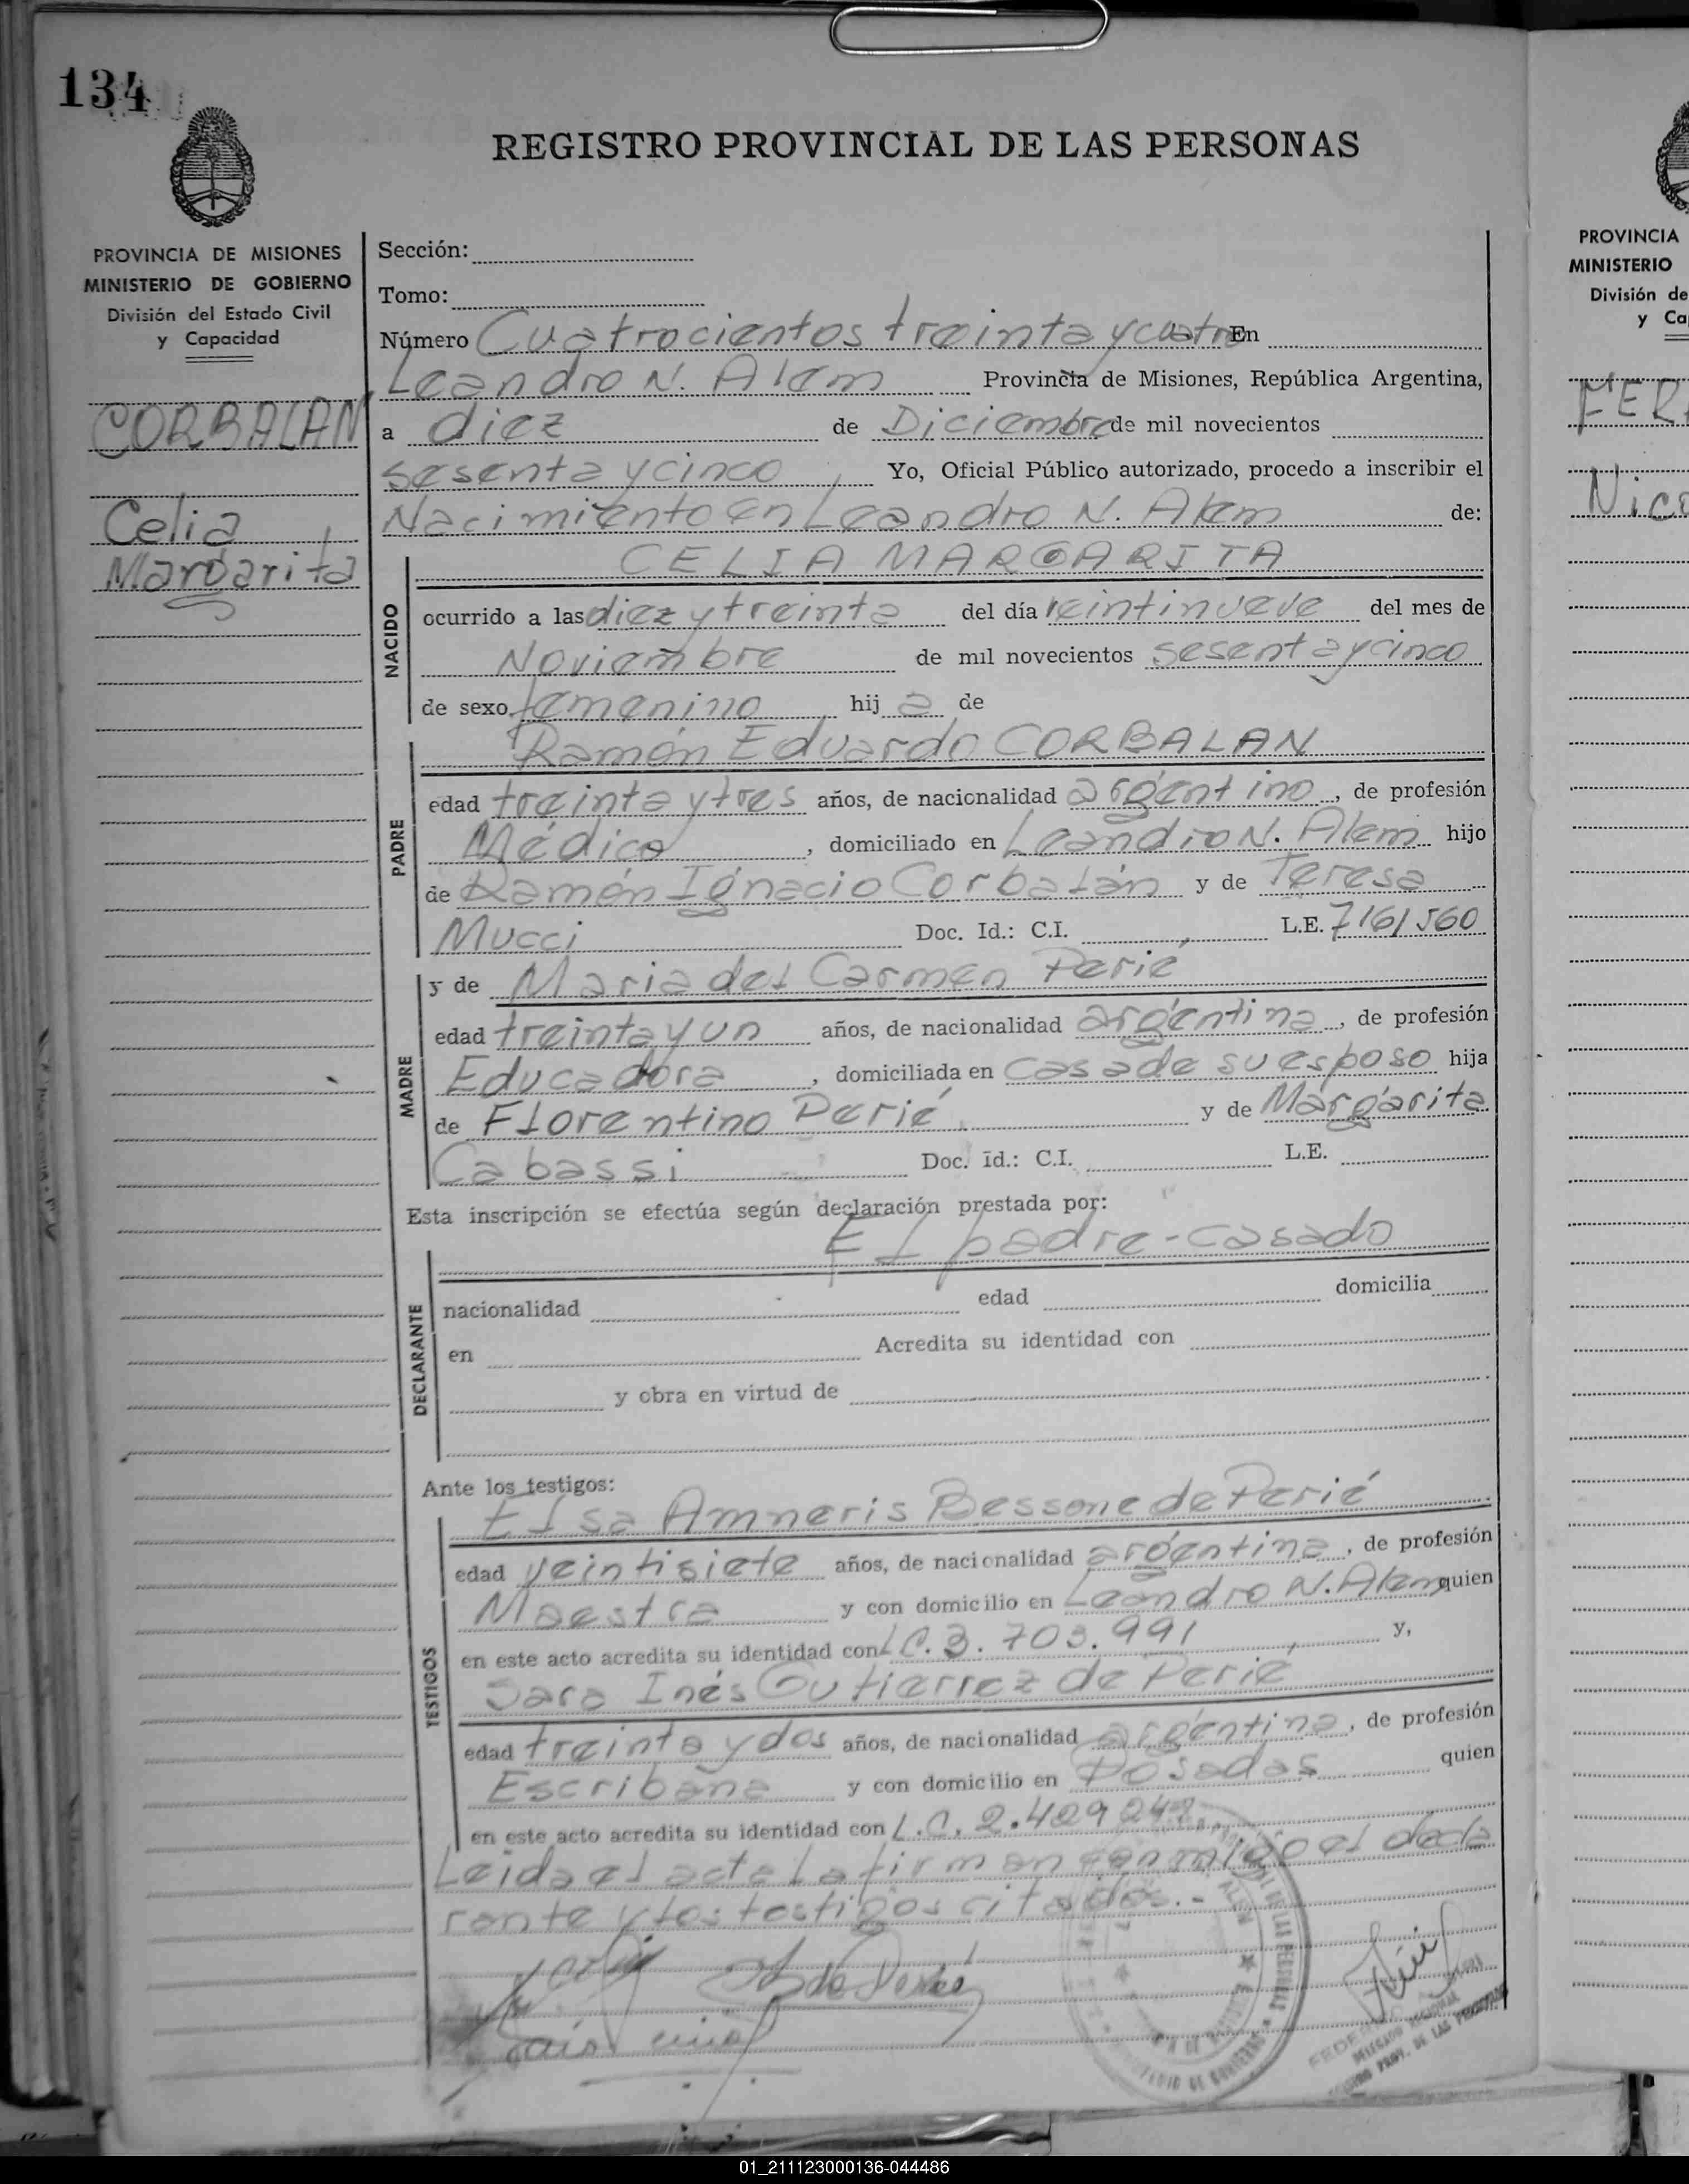 134
REGISTRO PROVINCIAL DE LAS PERSONAS
PROVINCIA DE MISIONES
MINISTERIO DE GOBIERNO
División del Estado Civil
y Capacidad
CORBALAN
Celia
Margarita
Sección:
Tomo:
Número Cuatrocientos treinta y cuatro En
Leandro N. Alem Provincia de Misiones, República Argentina,
a diez de Diciembre de mil novecientos
sesenta y cinco Yo, Oficial Público autorizado, procedo a inscribir el
Nacimiento en Leandro N. Alem de:
CELIA MARGARITA
NACIDO
ocurrido a las diez y treinta del día veintinueve del mes de
Noviembre de mil novecientos sesenta y cinco
de sexo femenino hij a de
Ramón Eduardo CORBALAN
PADRE
edad treinta y tres años, de nacionalidad argentino, de profesión
Médico, domiciliado en Leandro N. Alem hijo
de Ramón Ignacio Corbalán y de Teresa
Mucci Doc. Id.: C.I. L.E. 7161560
y de Maria del Carmen Perié
MADRE
edad treinta y un años, de nacionalidad argentina, de profesión
Educadora, domiciliada en casa de su esposo hija
de Florentino Perié y de Margarita
Cabassi Doc. Id.: C.I. L.E.
Esta inscripción se efectúa según declaración prestada por:
El padre - casado
DECLARANTE
nacionalidad edad domicilia
en Acredita su identidad con
y obra en virtud de
Ante los testigos:
Elsa Amneris Bessone de Perié
TESTIGOS
edad veintisiete años, de nacionalidad argentina, de profesión
Maestra y con domicilio en Leandro N. Alem quien
en este acto acredita su identidad con L.C. 3.703.991 y,
Sara Inés Gutierrez de Perié
edad treinta y dos años, de nacionalidad argentina, de profesión
Escribana y con domicilio en Posadas quien
en este acto acredita su identidad con L.C. 2.429
Leida el acta la firman conmigo el decla
rante y los testigos citados.-
de Perié
DELEGADO REGIONAL
PROV. DE LAS PERSONAS
PROVINCIA
MINISTERIO
División de
y Ca
FER
Nico
01_211123000136-044486